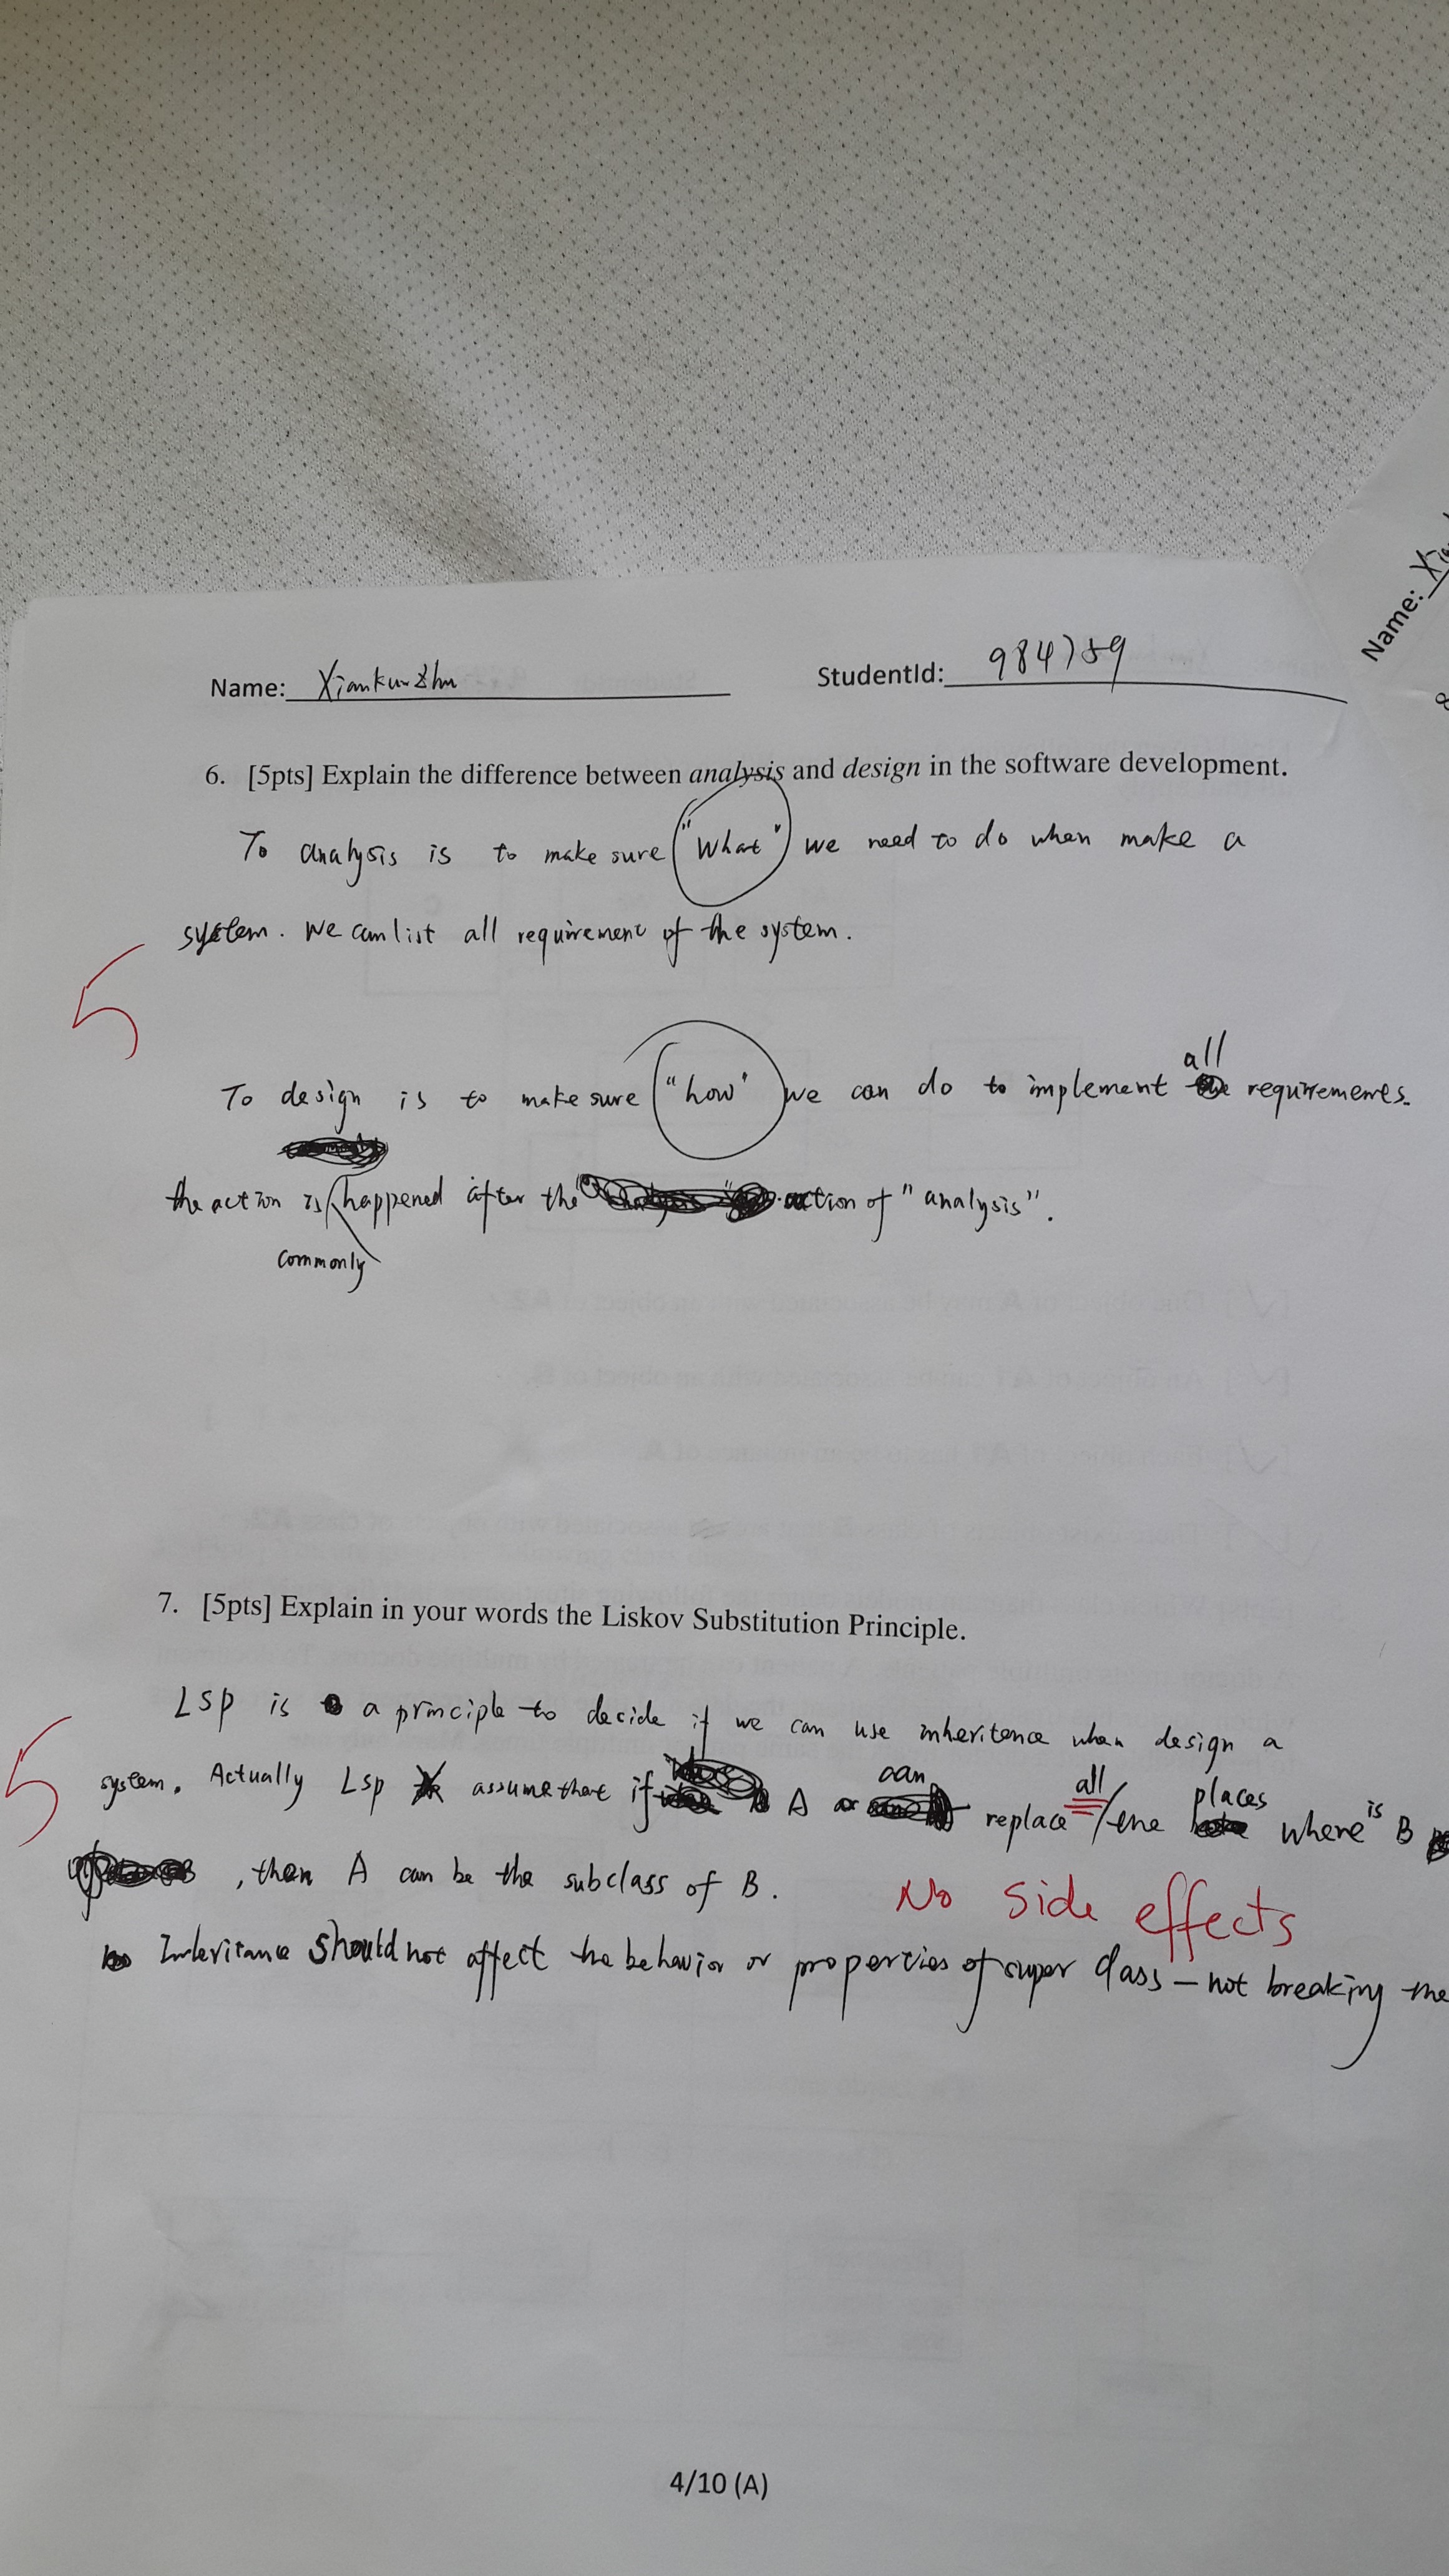 Name: Xiankun Zhu StudentId: 984759
Name: Xia
6. [5pts] Explain the difference between analysis and design in the software development.
To analysis is to make sure "What" we need to do when make a
system. We can list all requirement of the system.
5
all
To design is to make sure "how" we can do to implement requirements.
the action is happened after the action of "analysis".
commonly
7. [5pts] Explain in your words the Liskov Substitution Principle.
LSP is a principle to decide if we can use inheritence when design a
5
system. Actually LSP assume that if A can replace all the places where is B
, then A can be the subclass of B.
No side effects
Inheritance should not affect the behavior or properties of super class – not breaking the
4/10 (A)